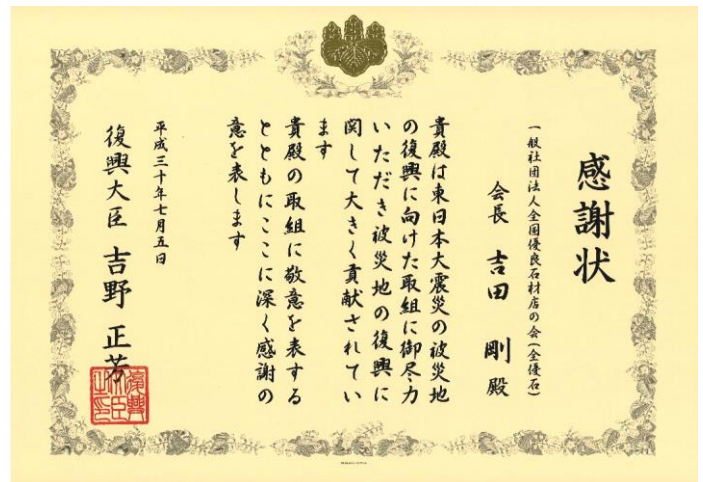 感謝状
一般社団法人全国優良石材店の会(全優石)
会長 吉田 剛 殿
貴殿は東日本大震災の被災地
の復興に向けた取組に御尽力
いただき被災地の復興に
関して大きく貢献されてい
ます
貴殿の取組に敬意を表する
とともにここに深く感謝の
意を表します
平成三十年七月五日
復興大臣 吉野 正芳
復興大臣之印